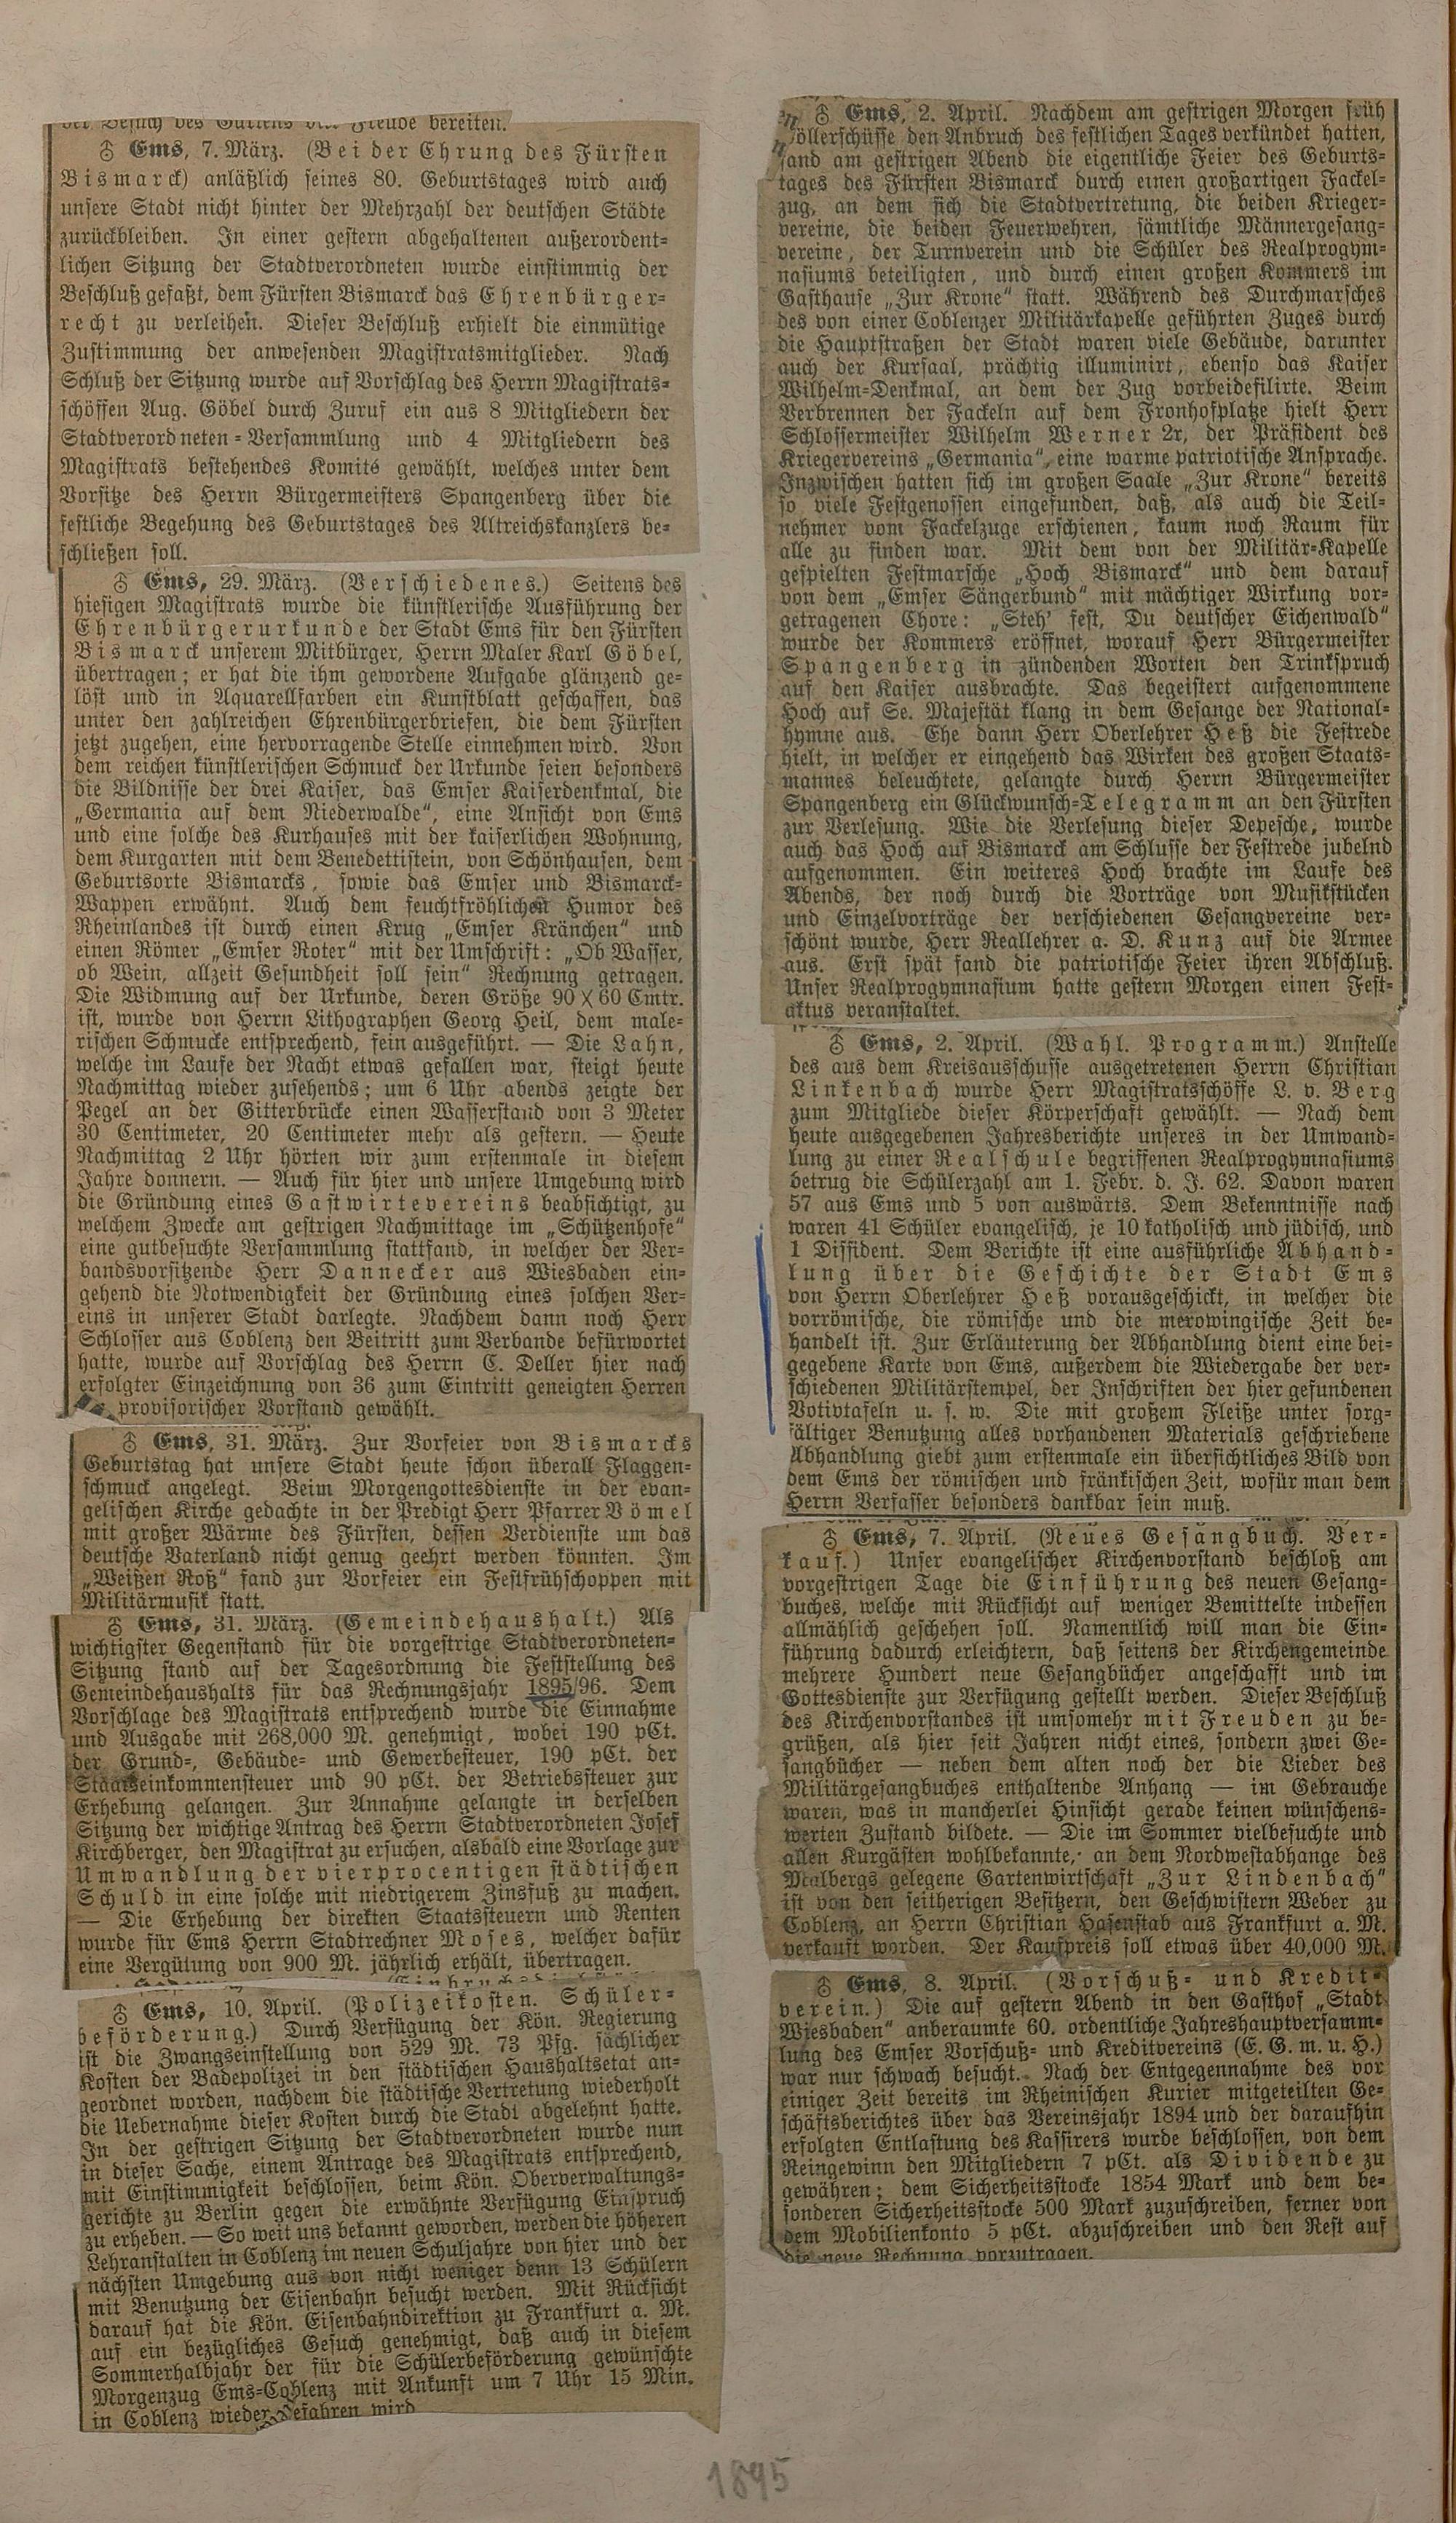 der Besuch des Gartens viel Freude bereiten.
♁ Ems, 7. März. (Bei der Ehrung des Fürsten
Bismarck) anläßlich seines 80. Geburtstages wird auch
unsere Stadt nicht hinter der Mehrzahl der deutschen Städte
zurückbleiben. In einer gestern abgehaltenen außerordent-
lichen Sitzung der Stadtverordneten wurde einstimmig der
Beschluß gefaßt, dem Fürsten Bismarck das Ehrenbürger-
recht zu verleihen. Dieser Beschluß erhielt die einmütige
Zustimmung der anwesenden Magistratsmitglieder. Nach
Schluß der Sitzung wurde auf Vorschlag des Herrn Magistrats-
schöffen Aug. Göbel durch Zuruf ein aus 8 Mitgliedern der
Stadtverordneten-Versammlung und 4 Mitgliedern des
Magistrats bestehendes Komité gewählt, welches unter dem
Vorsitze des Herrn Bürgermeisters Spangenberg über die
festliche Begehung des Geburtstages des Altreichskanzlers be-
schließen soll.
♁ Ems, 29. März. (Verschiedenes.) Seitens des
hiesigen Magistrats wurde die künstlerische Ausführung der
Ehrenbürgerurkunde der Stadt Ems für den Fürsten
Bismarck unserem Mitbürger, Herrn Maler Karl Göbel,
übertragen; er hat die ihm gewordene Aufgabe glänzend ge-
löst und in Aquarellfarben ein Kunstblatt geschaffen, das
unter den zahlreichen Ehrenbürgerbriefen, die dem Fürsten
jetzt zugehen, eine hervorragende Stelle einnehmen wird. Von
dem reichen künstlerischen Schmuck der Urkunde seien besonders
die Bildnisse der drei Kaiser, das Emser Kaiserdenkmal, die
„Germania auf dem Niederwalde“, eine Ansicht von Ems
und eine solche des Kurhauses mit der kaiserlichen Wohnung,
dem Kurgarten mit dem Benedettistein, von Schönhausen, dem
Geburtsorte Bismarcks, sowie das Emser und Bismarck-
Wappen erwähnt. Auch dem feuchtfröhlichen Humor des
Rheinlandes ist durch einen Krug „Emser Kränchen“ und
einen Römer „Emser Roter“ mit der Umschrift: „Ob Wasser,
ob Wein, allzeit Gesundheit soll sein“ Rechnung getragen.
Die Widmung auf der Urkunde, deren Größe 90 X 60 Cmtr.
ist, wurde von Herrn Lithographen Georg Heil, dem male-
rischen Schmucke entsprechend, fein ausgeführt. — Die Lahn,
welche im Laufe der Nacht etwas gefallen war, steigt heute
Nachmittag wieder zusehends; um 6 Uhr abends zeigte der
Pegel an der Gitterbrücke einen Wasserstand von 3 Meter
30 Centimeter, 20 Centimeter mehr als gestern. — Heute
Nachmittag 2 Uhr hörten wir zum erstenmale in diesem
Jahre donnern. — Auch für hier und unsere Umgebung wird
die Gründung eines Gastwirtevereins beabsichtigt, zu
welchem Zwecke am gestrigen Nachmittage im „Schützenhofe“
eine gutbesuchte Versammlung stattfand, in welcher der Ver-
bandsvorsitzende Herr Dannecker aus Wiesbaden ein-
gehend die Notwendigkeit der Gründung eines solchen Ver-
eins in unserer Stadt darlegte. Nachdem dann noch Herr
Schlosser aus Coblenz den Beitritt zum Verbande befürwortet
hatte, wurde auf Vorschlag des Herrn C. Deller hier nach
erfolgter Einzeichnung von 36 zum Eintritt geneigten Herren
provisorischer Vorstand gewählt.
♁ Ems, 31. März. Zur Vorfeier von Bismarcks
Geburtstag hat unsere Stadt heute schon überall Flaggen-
schmuck angelegt. Beim Morgengottesdienste in der evan-
gelischen Kirche gedachte in der Predigt Herr Pfarrer Vömel
mit großer Wärme des Fürsten, dessen Verdienste um das
deutsche Vaterland nicht genug geehrt werden könnten. Im
„Weißen Roß“ fand zur Vorfeier ein Festfrühschoppen mit
Militärmusik statt.
♁ Ems, 31. März. (Gemeindehaushalt.) Als
wichtigster Gegenstand für die vorgestrige Stadtverordneten-
Sitzung stand auf der Tagesordnung die Feststellung des
Gemeindehaushalts für das Rechnungsjahr 1895/96. Dem
Vorschlage des Magistrats entsprechend wurde die Einnahme
und Ausgabe mit 268,000 M. genehmigt, wobei 190 pCt.
der Grund-, Gebäude- und Gewerbesteuer, 190 pCt. der
Staatseinkommensteuer und 90 pCt. der Betriebssteuer zur
Erhebung gelangen. Zur Annahme gelangte in derselben
Sitzung der wichtige Antrag des Herrn Stadtverordneten Josef
Kirchberger, den Magistrat zu ersuchen, alsbald eine Vorlage zur
Umwandlung der vierprocentigen städtischen
Schuld in eine solche mit niedrigerem Zinsfuß zu machen.
— Die Erhebung der direkten Staatssteuern und Renten
wurde für Ems Herrn Stadtrechner Moses, welcher dafür
eine Vergütung von 900 M. jährlich erhält, übertragen.
♁ Ems, 10. April. (Polizeikosten. Schüler-
beförderung.) Durch Verfügung der Kön. Regierung
ist die Zwangseinstellung von 529 M. 73 Pfg. sächlicher
Kosten der Badepolizei in den städtischen Haushaltsetat an-
geordnet worden, nachdem die städtische Vertretung wiederholt
die Uebernahme dieser Kosten durch die Stadt abgelehnt hatte.
In der gestrigen Sitzung der Stadtverordneten wurde nun
in dieser Sache, einem Antrage des Magistrats entsprechend,
mit Einstimmigkeit beschlossen, beim Kön. Oberverwaltungs-
gerichte zu Berlin gegen die erwähnte Verfügung Einspruch
zu erheben. — So weit uns bekannt geworden, werden die höheren
Lehranstalten in Coblenz im neuen Schuljahre von hier und der
nächsten Umgebung aus von nicht weniger denn 13 Schülern
mit Benutzung der Eisenbahn besucht werden. Mit Rücksicht
darauf hat die Kön. Eisenbahndirektion zu Frankfurt a. M.
auf ein bezügliches Gesuch genehmigt, daß auch in diesem
Sommerhalbjahr der für die Schülerbeförderung gewünschte
Morgenzug Ems-Coblenz mit Ankunft um 7 Uhr 15 Min.
in Coblenz wieder gefahren wird
♁ Ems, 2. April. Nachdem am gestrigen Morgen früh
öllerschüsse den Anbruch des festlichen Tages verkündet hatten,
fand am gestrigen Abend die eigentliche Feier des Geburts-
tages des Fürsten Bismarck durch einen großartigen Fackel-
zug, an dem sich die Stadtvertretung, die beiden Krieger-
vereine, die beiden Feuerwehren, sämtliche Männergesang-
vereine, der Turnverein und die Schüler des Realprogym-
nasiums beteiligten, und durch einen großen Kommers im
Gasthause „Zur Krone“ statt. Während des Durchmarsches
des von einer Coblenzer Militärkapelle geführten Zuges durch
die Hauptstraßen der Stadt waren viele Gebäude, darunter
auch der Kursaal, prächtig illuminirt, ebenso das Kaiser
Wilhelm-Denkmal, an dem der Zug vorbeidefilirte. Beim
Verbrennen der Fackeln auf dem Fronhofplatze hielt Herr
Schlossermeister Wilhelm Werner 2r, der Präsident des
Kriegervereins „Germania“, eine warme patriotische Ansprache.
Inzwischen hatten sich im großen Saale „Zur Krone“ bereits
so viele Festgenossen eingefunden, daß, als auch die Teil-
nehmer vom Fackelzuge erschienen, kaum noch Raum für
alle zu finden war. Mit dem von der Militär-Kapelle
gespielten Festmarsche „Hoch Bismarck“ und dem darauf
von dem „Emser Sängerbund“ mit mächtiger Wirkung vor-
getragenen Chore: „Steh' fest, Du deutscher Eichenwald“
wurde der Kommers eröffnet, worauf Herr Bürgermeister
Spangenberg in zündenden Worten den Trinkspruch
auf den Kaiser ausbrachte. Das begeistert aufgenommene
Hoch auf Se. Majestät klang in dem Gesange der National-
hymne aus. Ehe dann Herr Oberlehrer Heß die Festrede
hielt, in welcher er eingehend das Wirken des großen Staats-
mannes beleuchtete, gelangte durch Herrn Bürgermeister
Spangenberg ein Glückwunsch-Telegramm an den Fürsten
zur Verlesung. Wie die Verlesung dieser Depesche, wurde
auch das Hoch auf Bismarck am Schlusse der Festrede jubelnd
aufgenommen. Ein weiteres Hoch brachte im Laufe des
Abends, der noch durch die Vorträge von Musikstücken
und Einzelvorträge der verschiedenen Gesangvereine ver-
schönt wurde, Herr Reallehrer a. D. Kunz auf die Armee
aus. Erst spät fand die patriotische Feier ihren Abschluß.
Unser Realprogymnasium hatte gestern Morgen einen Fest-
aktus veranstaltet.
♁ Ems, 2. April. (Wahl. Programm.) Anstelle
des aus dem Kreisausschusse ausgetretenen Herrn Christian
Linkenbach wurde Herr Magistratsschöffe L. v. Berg
zum Mitgliede dieser Körperschaft gewählt. — Nach dem
heute ausgegebenen Jahresberichte unseres in der Umwand-
lung zu einer Realschule begriffenen Realprogymnasiums
betrug die Schülerzahl am 1. Febr. d. J. 62. Davon waren
57 aus Ems und 5 von auswärts. Dem Bekenntnisse nach
waren 41 Schüler evangelisch, je 10 katholisch und jüdisch, und
1 Dissident. Dem Berichte ist eine ausführliche Abhand-
lung über die Geschichte der Stadt Ems
von Herrn Oberlehrer Heß vorausgeschickt, in welcher die
vorrömische, die römische und die merowingische Zeit be-
handelt ist. Zur Erläuterung der Abhandlung dient eine bei-
gegebene Karte von Ems, außerdem die Wiedergabe der ver-
schiedenen Militärstempel, der Inschriften der hier gefundenen
Votivtafeln u. s. w. Die mit großem Fleiße unter sorg-
fältiger Benutzung alles vorhandenen Materials geschriebene
Abhandlung giebt zum erstenmale ein übersichtliches Bild von
dem Ems der römischen und fränkischen Zeit, wofür man dem
Herrn Verfasser besonders dankbar sein muß.
♁ Ems, 7. April. (Neues Gesangbuch. Ver-
kauf.) Unser evangelischer Kirchenvorstand beschloß am
vorgestrigen Tage die Einführung des neuen Gesang-
buches, welche mit Rücksicht auf weniger Bemittelte indessen
allmählich geschehen soll. Namentlich will man die Ein-
führung dadurch erleichtern, daß seitens der Kirchengemeinde
mehrere Hundert neue Gesangbücher angeschafft und im
Gottesdienste zur Verfügung gestellt werden. Dieser Beschluß
des Kirchenvorstandes ist umsomehr mit Freuden zu be-
grüßen, als hier seit Jahren nicht eines, sondern zwei Ge-
sangbücher — neben dem alten noch der die Lieder des
Militärgesangbuches enthaltende Anhang — im Gebrauche
waren, was in mancherlei Hinsicht gerade keinen wünschens-
werten Zustand bildete. — Die im Sommer vielbesuchte und
allen Kurgästen wohlbekannte, an dem Nordwestabhange des
Malbergs gelegene Gartenwirtschaft „Zur Lindenbach“
ist von den seitherigen Besitzern, den Geschwistern Weber zu
Coblenz, an Herrn Christian Hasenstab aus Frankfurt a. M.
verkauft worden. Der Kaufpreis soll etwas über 40,000 M.
♁ Ems, 8. April. (Vorschuß- und Kredit-
verein.) Die auf gestern Abend in den Gasthof „Stadt
Wiesbaden“ anberaumte 60. ordentliche Jahreshauptversamm-
lung des Emser Vorschuß- und Kreditvereins (E. G. m. u. H.)
war nur schwach besucht. Nach der Entgegennahme des vor
einiger Zeit bereits im Rheinischen Kurier mitgeteilten Ge-
schäftsberichtes über das Vereinsjahr 1894 und der daraufhin
erfolgten Entlastung des Kassirers wurde beschlossen, von dem
Reingewinn den Mitgliedern 7 pCt. als Dividende zu
gewähren; dem Sicherheitsstocke 1854 Mark und dem be-
sonderen Sicherheitsstocke 500 Mark zuzuschreiben, ferner von
dem Mobilienkonto 5 pCt. abzuschreiben und den Rest auf
die neue Rechnung vorzutragen.
1895